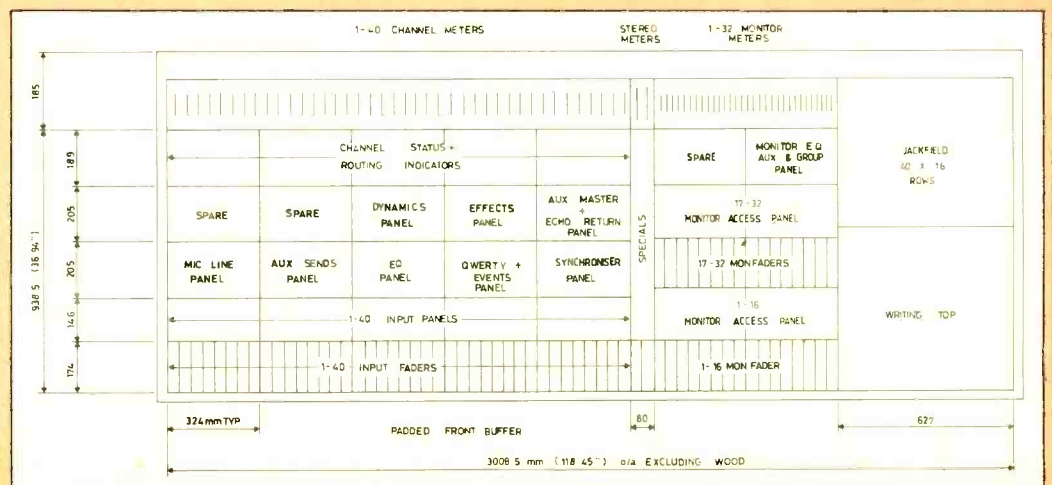 1-40 CHANNEL METERS
STEREO
METERS
1-32 MONITOR
METERS
185
CHANNEL STATUS +
ROUTING INDICATORS
189
SPARE
MONITOR EQ
AUX & GROUP
PANEL
JACKFIELD
40 X 16
ROWS
205
SPARE
SPARE
DYNAMICS
PANEL
EFFECTS
PANEL
AUX MASTER
+
ECHO RETURN
PANEL
SPECIALS
17-32
MONITOR ACCESS PANEL
938.5 (36 94")
205
MIC LINE
PANEL
AUX SENDS
PANEL
EQ
PANEL
QWERTY +
EVENTS
PANEL
SYNCHRONISER
PANEL
17-32 MON FADERS
146
1-40 INPUT PANELS
1-16
MONITOR ACCESS PANEL
WRITING TOP
174
1-40 INPUT FADERS
1-16 MON FADER
324mm TYP
PADDED FRONT BUFFER
80
627
3008 5 mm (118 45") o/a EXCLUDING WOOD